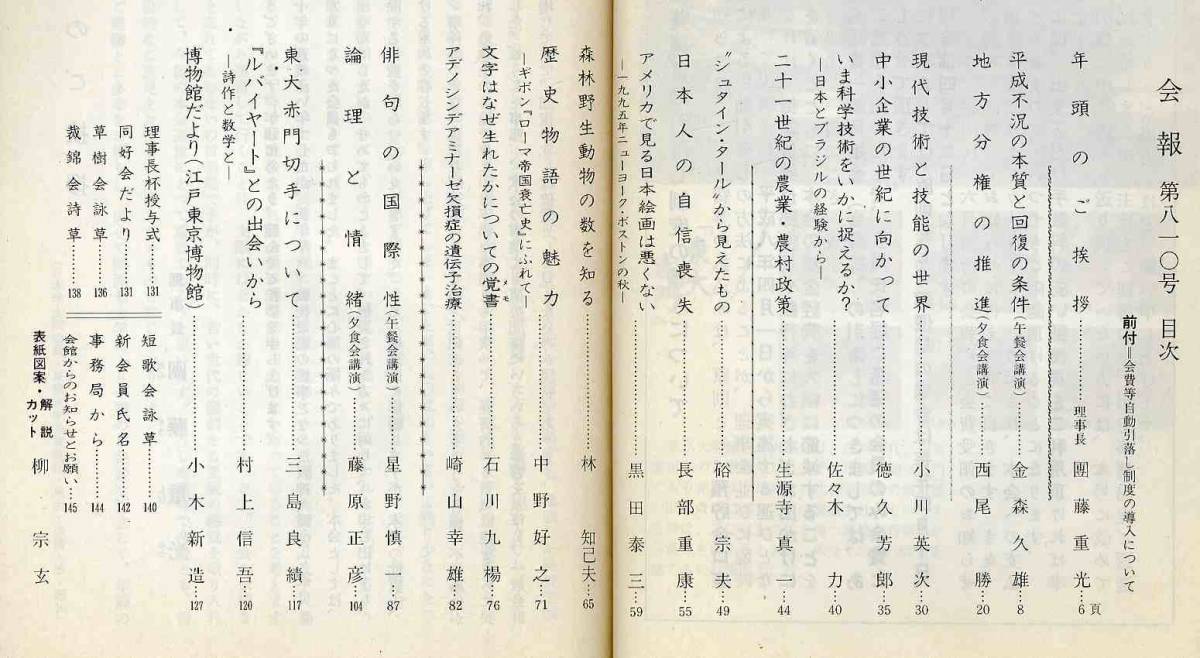 会報 第八一〇号 目次
前付＝会費等自動引落し制度の導入について
年頭のご挨拶…………理事長 團藤重光…6頁
平成不況の本質と回復の条件(午餐会講演)………金森久雄…8
地方分権の推進(夕食会講演)………西尾勝…20
現代技術と技能の世界………小川英次…30
中小企業の世紀に向かって………徳久芳郎…35
いま科学技術をいかに捉えるか？
―日本とブラジルの経験から―………佐々木力…40
二十一世紀の農業・農村政策………生源寺真一…44
“シュタイン・タール”から見えたもの………硲宗夫…49
日本人の自信喪失………長部重康…55
アメリカで見る日本絵画は悪くない
―一九九五年ニューヨーク・ボストンの秋―………黒田泰三…59
森林野生動物の数を知る………林知己夫…65
歴史物語の魅力
―ギボン『ローマ帝国衰亡史』にふれて―………中野好之…71
文字はなぜ生れたかについての覚書………石川九楊…76
メモ
アデノシンデアミナーゼ欠損症の遺伝子治療………崎山幸雄…82
俳句の国際性(午餐会講演)………星野慎一…87
論理と情緒(夕食会講演)………藤原正彦…104
東大赤門切手について………三島良績…117
『ルバイヤート』との出会いから
―詩作と数学と―………村上信吾…120
博物館だより(江戸東京博物館)………小木新造…127
理事長杯授与式………131
同好会だより………131
草樹会詠草………136
裁錦会詩草………138
短歌会詠草………140
新会員氏名………142
事務局から………144
会館からのお知らせとお願い………145
表紙図案・解説
カット
柳宗玄